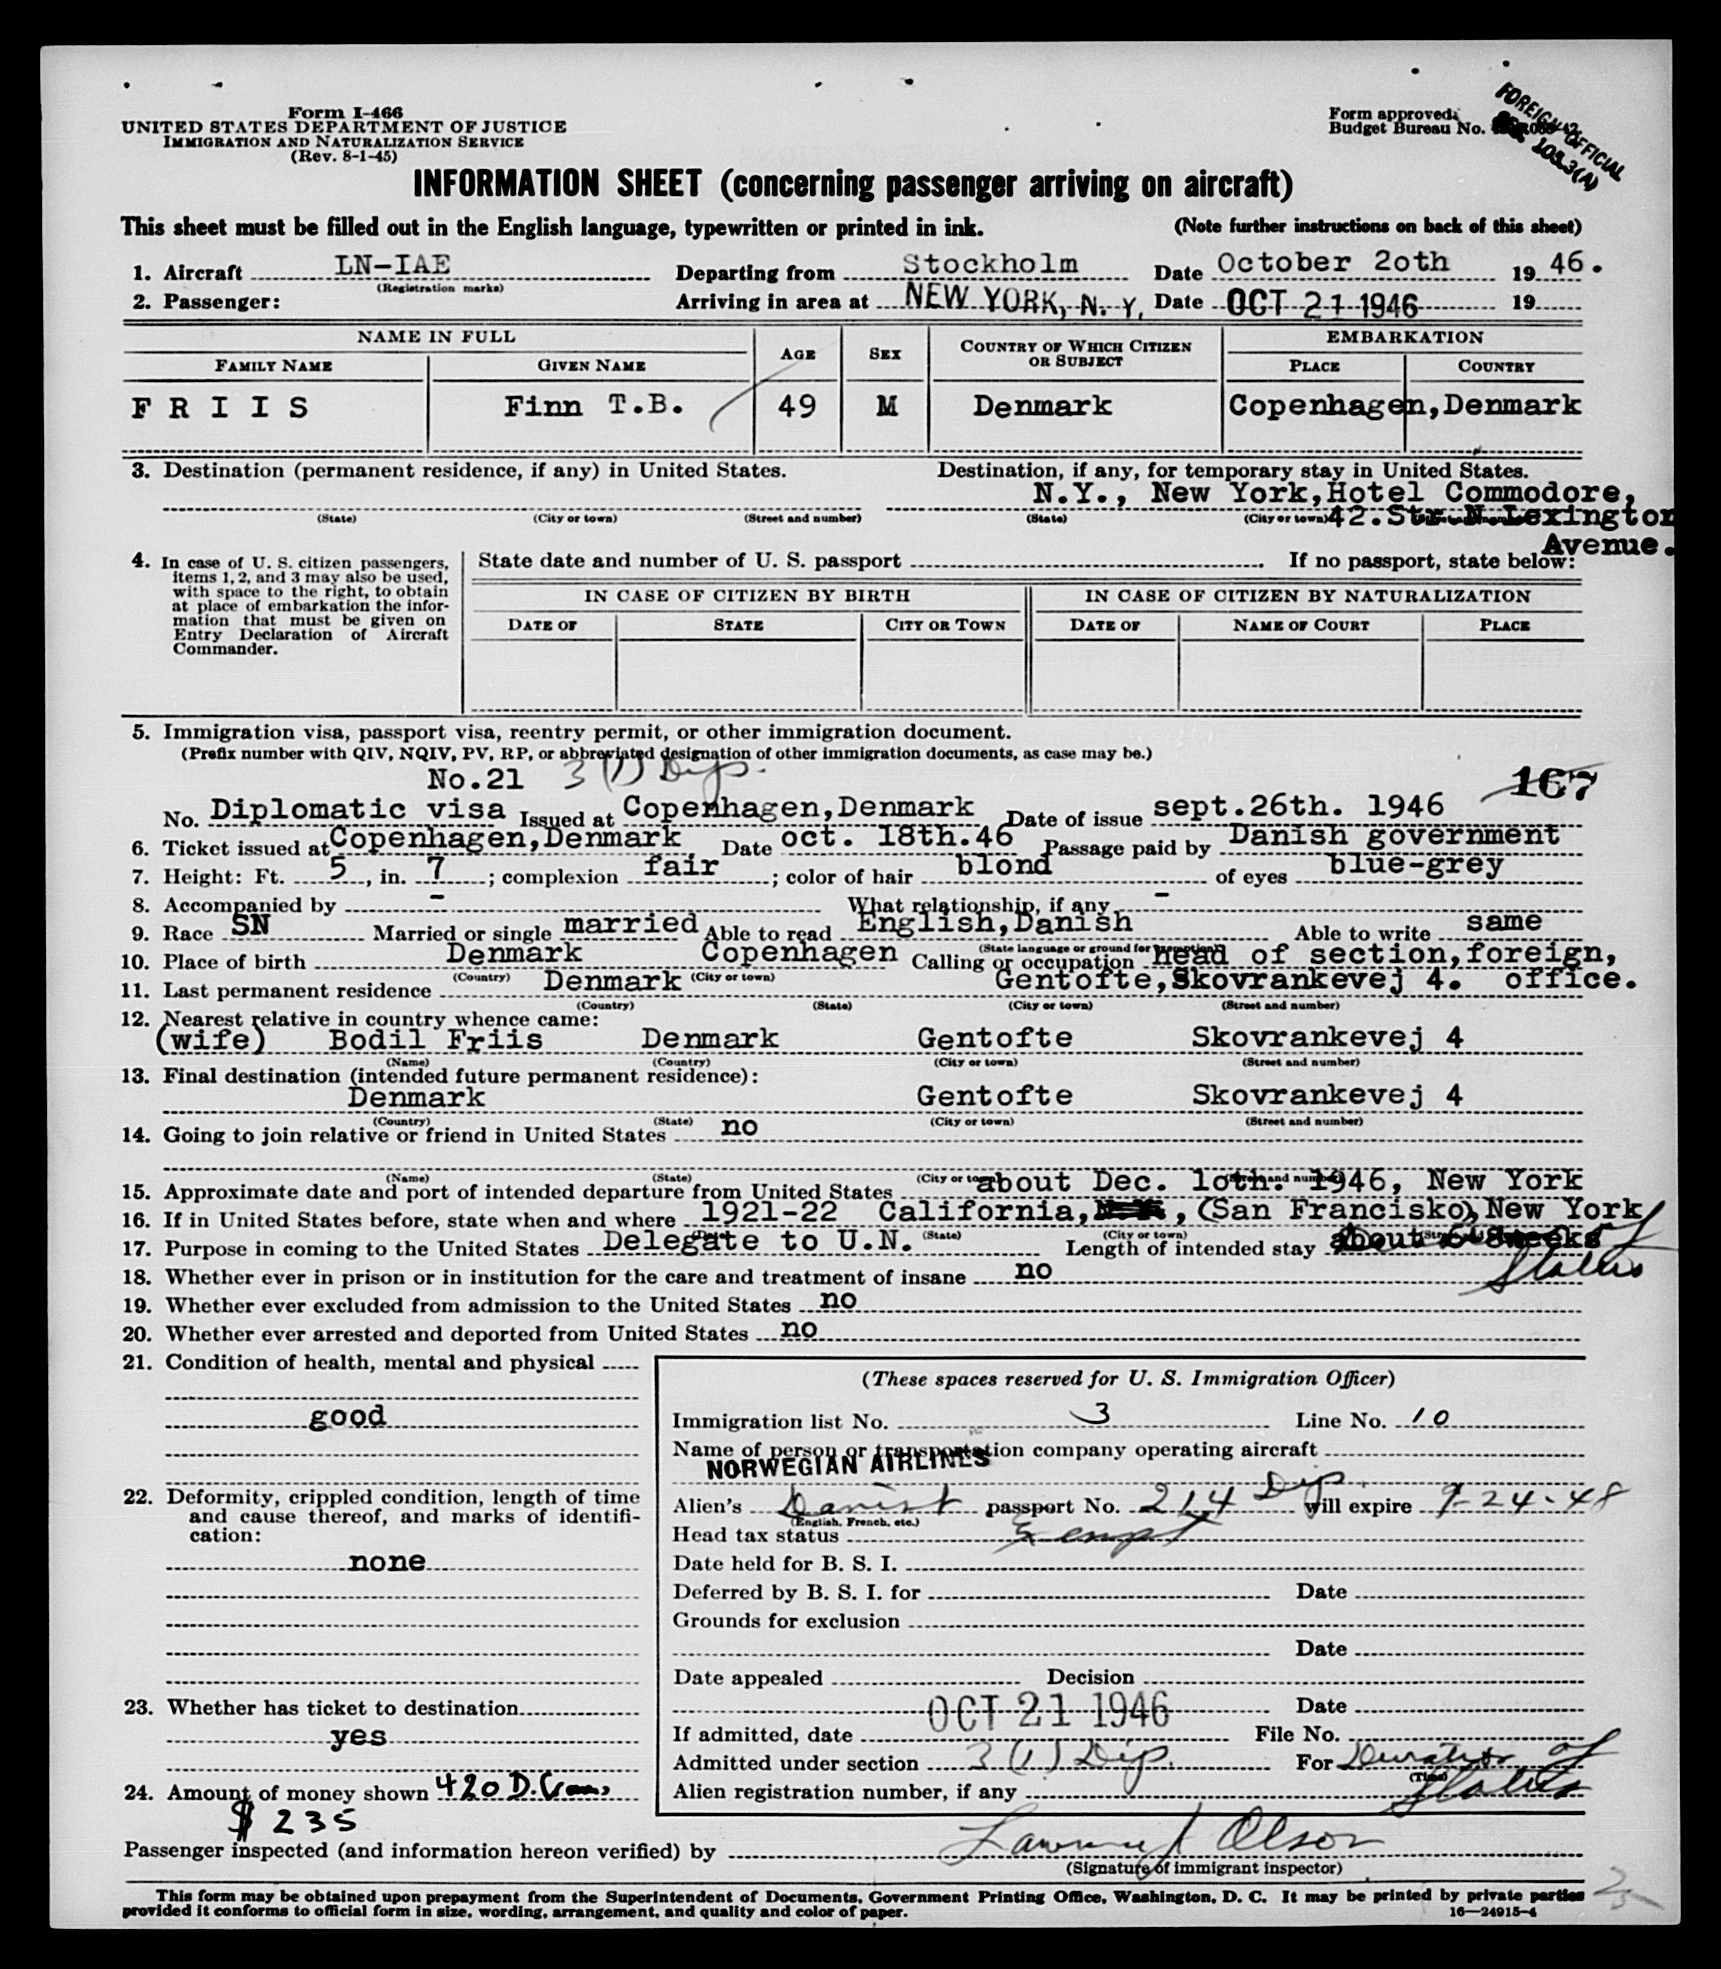 Form I-466
UNITED STATES DEPARTMENT OF JUSTICE
IMMIGRATION AND NATURALIZATION SERVICE
(Rev. 8-1-45)
Form approved.
Budget Bureau No.
FOREIGN OFFICIAL
SEC 103.3(A)
INFORMATION SHEET (concerning passenger arriving on aircraft)
This sheet must be filled out in the English language, typewritten or printed in ink. (Note further instructions on back of this sheet)
1. Aircraft LN-IAE Departing from Stockholm Date October 2oth 19 46.
(Registration marks)
2. Passenger: Arriving in area at NEW YORK, N. Y. Date OCT 21 1946 19
NAME IN FULL AGE SEX COUNTRY OF WHICH CITIZEN OR SUBJECT EMBARKATION
FAMILY NAME GIVEN NAME PLACE COUNTRY
F R I I S Finn T.B. 49 M Denmark Copenhagen,Denmark
3. Destination (permanent residence, if any) in United States. Destination, if any, for temporary stay in United States.
N.Y., New York,Hotel Commodore,
(State) (City or town) (Street and number) (State) (City or town) 42.Str.N.Lexington
Avenue.
4. In case of U. S. citizen passengers, items 1, 2, and 3 may also be used, with space to the right, to obtain at place of embarkation the information that must be given on Entry Declaration of Aircraft Commander.
State date and number of U. S. passport If no passport, state below:
IN CASE OF CITIZEN BY BIRTH IN CASE OF CITIZEN BY NATURALIZATION
DATE OF STATE CITY OR TOWN DATE OF NAME OF COURT PLACE
5. Immigration visa, passport visa, reentry permit, or other immigration document.
(Prefix number with QIV, NQIV, PV, RP, or abbreviated designation of other immigration documents, as case may be.)
No.21 3(1) Dip. 167
No. Diplomatic visa Issued at Copenhagen,Denmark Date of issue sept.26th. 1946
6. Ticket issued at Copenhagen,Denmark Date oct. 18th.46 Passage paid by Danish government
7. Height: Ft. 5, in. 7; complexion fair; color of hair blond of eyes blue-grey
8. Accompanied by - What relationship, if any -
9. Race SN Married or single married Able to read English,Danish Able to write same
(State language or ground for exemption)
10. Place of birth Denmark Copenhagen Calling or occupation head of section,foreign,
(Country) (City or town)
11. Last permanent residence Denmark Gentofte,Skovrankevej 4. office.
(Country) (State) (City or town) (Street and number)
12. Nearest relative in country whence came:
(wife) Bodil Friis Denmark Gentofte Skovrankevej 4
(Name) (Country) (City or town) (Street and number)
13. Final destination (intended future permanent residence):
Denmark Gentofte Skovrankevej 4
(Country) (State) (City or town) (Street and number)
14. Going to join relative or friend in United States no
(Name) (State) (City or town) (Street and number)
15. Approximate date and port of intended departure from United States about Dec. 1oth. 1946, New York
16. If in United States before, state when and where 1921-22 California, , (San Francisco), New York
(State) (City or town)
17. Purpose in coming to the United States Delegate to U.N. Length of intended stay about 6-8weeks
Status
18. Whether ever in prison or in institution for the care and treatment of insane no
19. Whether ever excluded from admission to the United States no
20. Whether ever arrested and deported from United States no
21. Condition of health, mental and physical
good
22. Deformity, crippled condition, length of time and cause thereof, and marks of identification:
none
23. Whether has ticket to destination
yes
24. Amount of money shown 420 D.
$ 235
(These spaces reserved for U. S. Immigration Officer)
Immigration list No. 3 Line No. 10
Name of person or transportation company operating aircraft
NORWEGIAN AIRLINES
Alien's Danish passport No. 214 Dip. will expire 9-24-48
(English, French, etc.)
Head tax status Exempt
Date held for B. S. I.
Deferred by B. S. I. for Date
Grounds for exclusion
Date
Date appealed Decision
Date
If admitted, date OCT 21 1946 File No.
Admitted under section 3(1) Dip. For Duration of
(Time)
Alien registration number, if any Status
Passenger inspected (and information hereon verified) by Olson
(Signature of immigrant inspector)
This form may be obtained upon prepayment from the Superintendent of Documents, Government Printing Office, Washington, D. C. It may be printed by private parties
provided it conforms to official form in size, wording, arrangement, and quality and color of paper. 16—24915-4